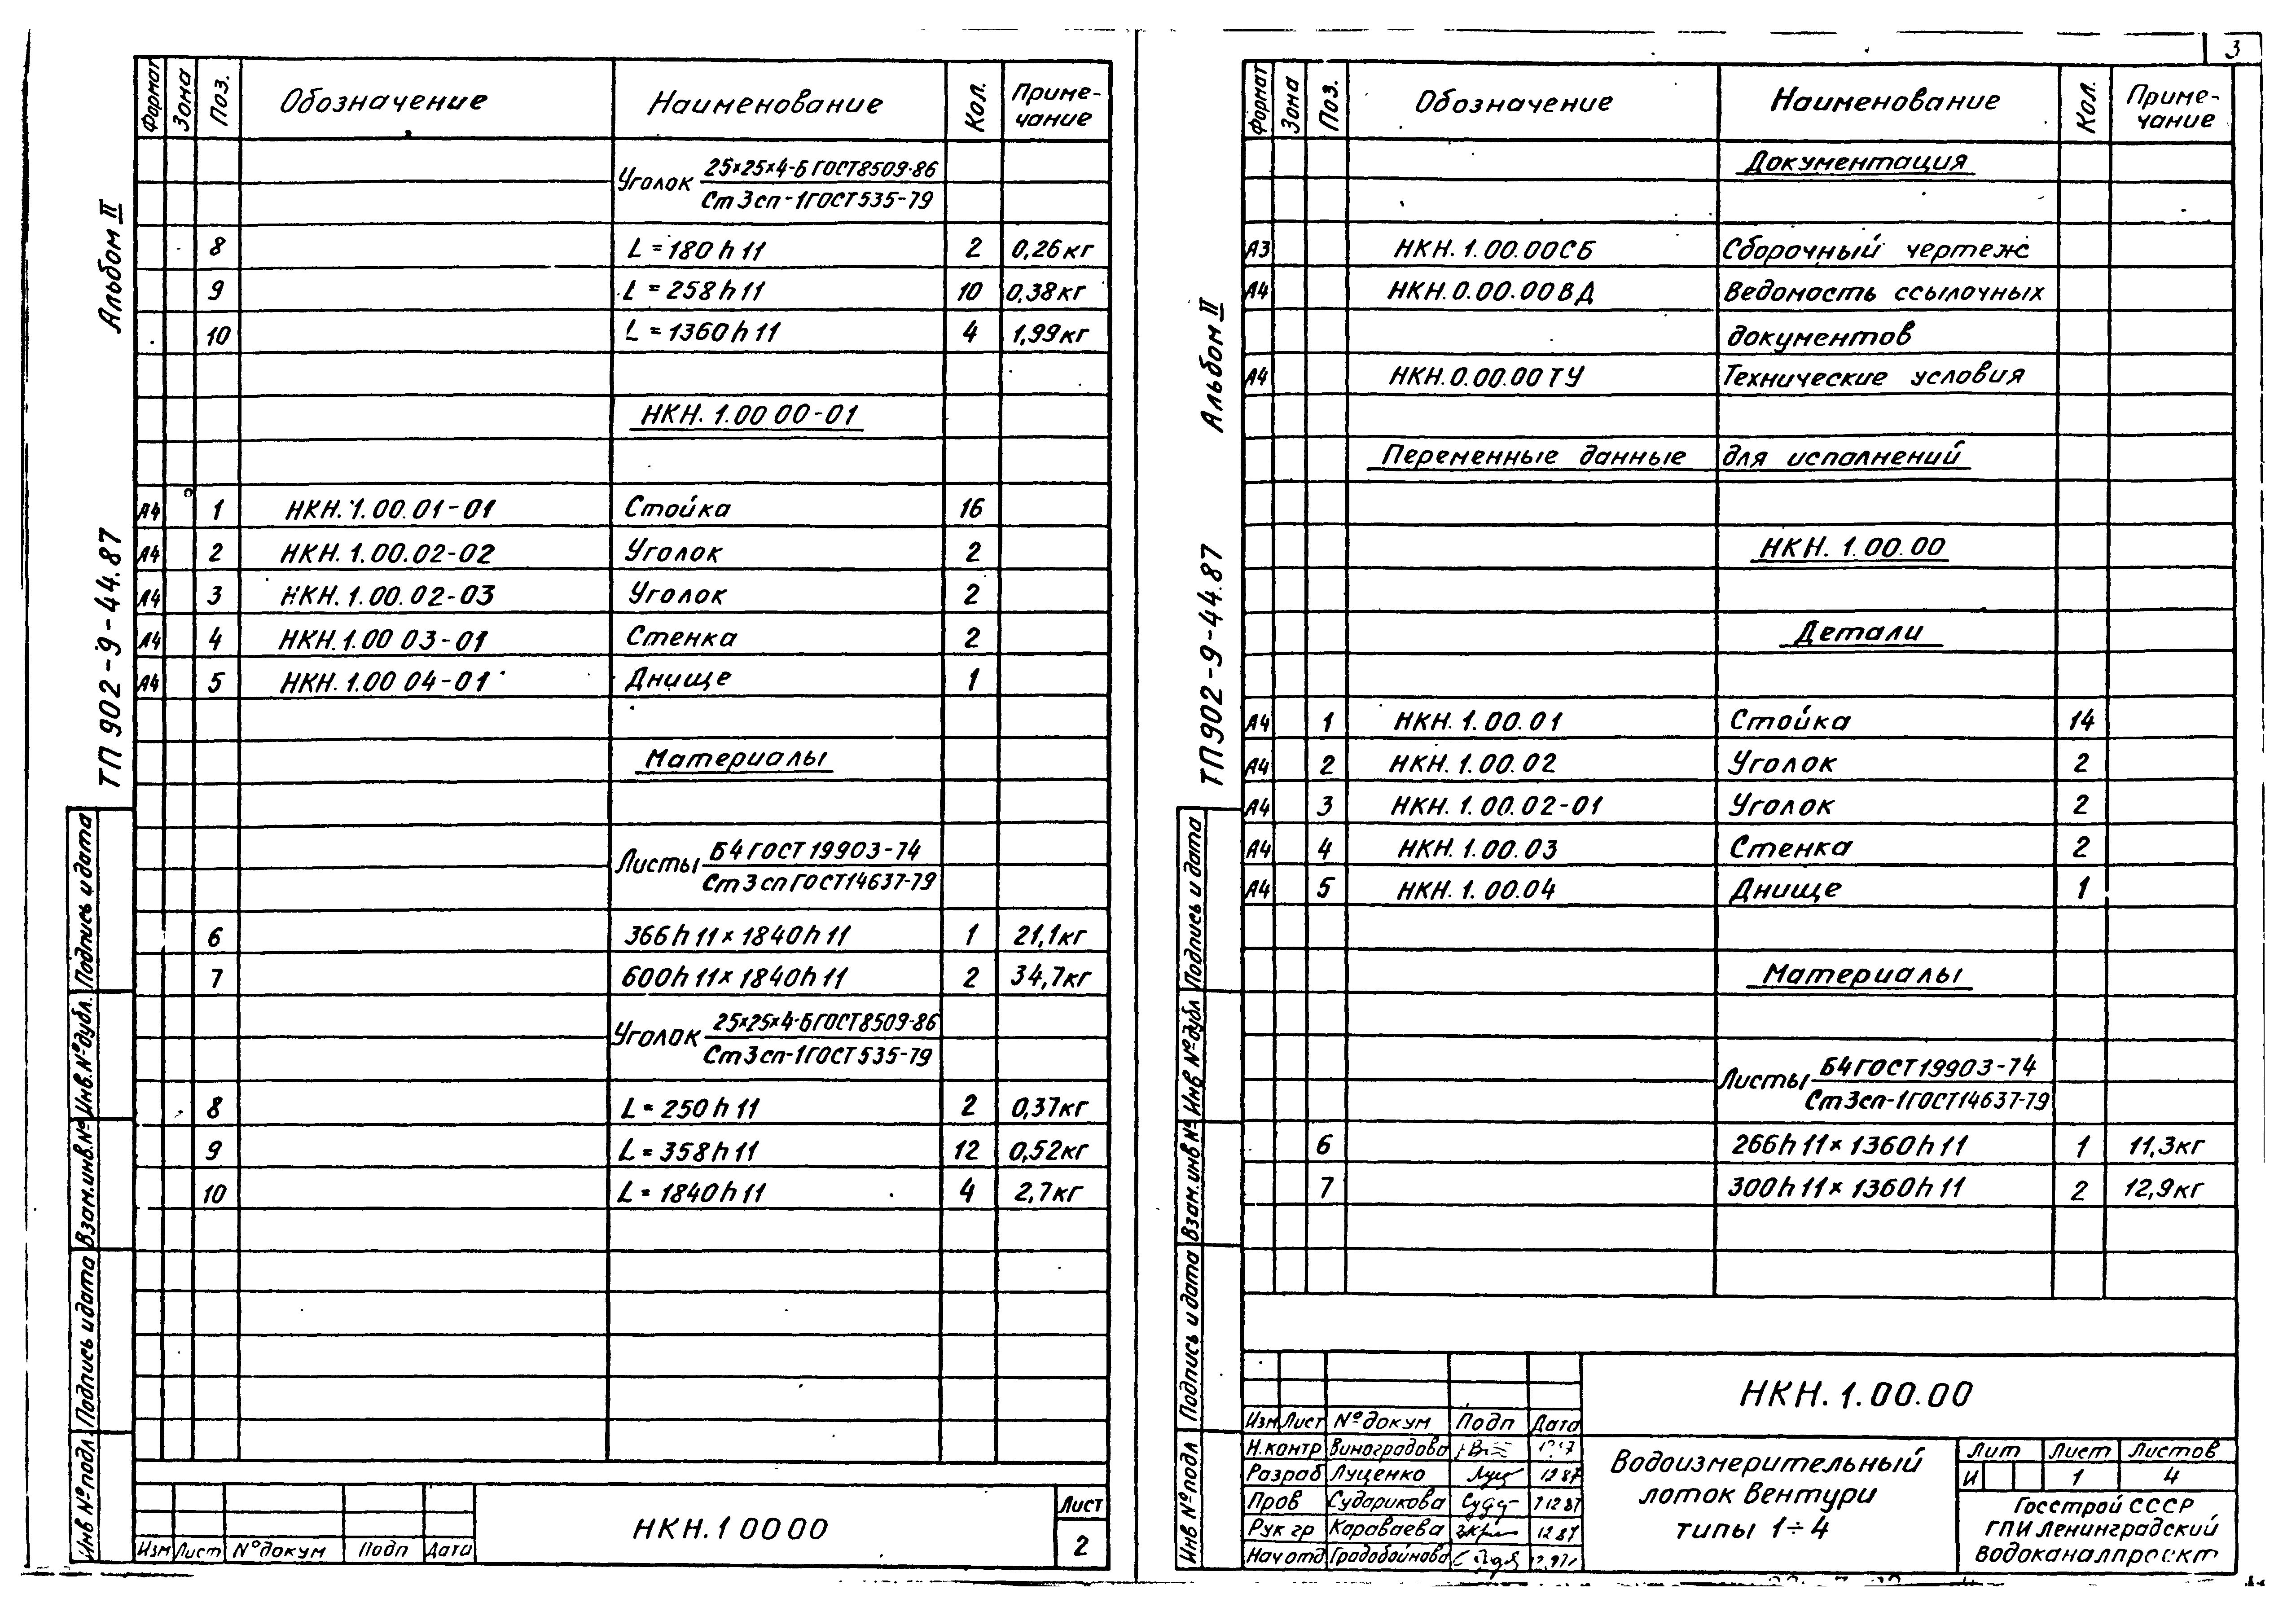 Альбом II
ТП 902-9-44.87
Формат Зона Поз. Обозначение Наименование Кол. Приме-
чание
Уголок 25×25×4-Б ГОСТ 8509-86
Ст3сп-1 ГОСТ 535-79
8 L = 180 h 11 2 0,26кг
9 L = 258 h 11 10 0,38кг
10 L = 1360 h 11 4 1,99кг
НКН. 1.00 00-01
А4 1 НКН. 1.00.01-01 Стойка 16
А4 2 НКН. 1.00.02-02 Уголок 2
А4 3 НКН. 1.00.02-03 Уголок 2
А4 4 НКН. 1.00 03-01 Стенка 2
А4 5 НКН. 1.00 04-01 Днище 1
Материалы
Листы Б4 ГОСТ 19903-74
Ст3сп ГОСТ 14637-79
6 366 h 11 × 1840 h 11 1 21,1кг
7 600 h 11 × 1840 h 11 2 34,7кг
Уголок 25×25×4-Б ГОСТ 8509-86
Ст3сп-1 ГОСТ 535-79
8 L = 250 h 11 2 0,37кг
9 L = 358 h 11 12 0,52кг
10 L = 1840 h 11 4 2,7кг
Подпись и дата
Инв. № дубл.
Взам.инв.№
Подпись и дата
Инв № подл.
Изм Лист № докум Подп Дата
НКН.1 00 00
Лист
2
3
Альбом II
ТП 902-9-44.87
Формат Зона Поз. Обозначение Наименование Кол. Приме-
чание
Документация
А3 НКН. 1.00.00СБ Сборочный чертеж
А4 НКН.0.00.00ВД Ведомость ссылочных
документов
А4 НКН.0.00.00ТУ Технические условия
Переменные данные для исполнений
НКН. 1.00.00
Детали
А4 1 НКН. 1.00.01 Стойка 14
А4 2 НКН. 1.00.02 Уголок 2
А4 3 НКН. 1.00.02-01 Уголок 2
А4 4 НКН. 1.00.03 Стенка 2
А4 5 НКН. 1.00.04 Днище 1
Материалы
Листы Б4 ГОСТ 19903-74
Ст3сп-1 ГОСТ 14637-79
6 266 h 11 × 1360 h 11 1 11,3кг
7 300 h 11 × 1360 h 11 2 12,9кг
Подпись и дата
Инв № дубл
Взам.инв №
Подпись и дата
Инв № подл
НКН.1.00.00
Изм Лист № докум Подп Дата
Н.контр Виноградова
Разраб Луценко 12 87
Пров Сударикова 12 87
Рук гр Караваева 12 87
Нач отд Градобойнова
Водоизмерительный
лоток Вентури
типы 1÷4
Лит Лист Листов
И 1 4
Госстрой СССР
ГПИ Ленинградский
Водоканалпроект